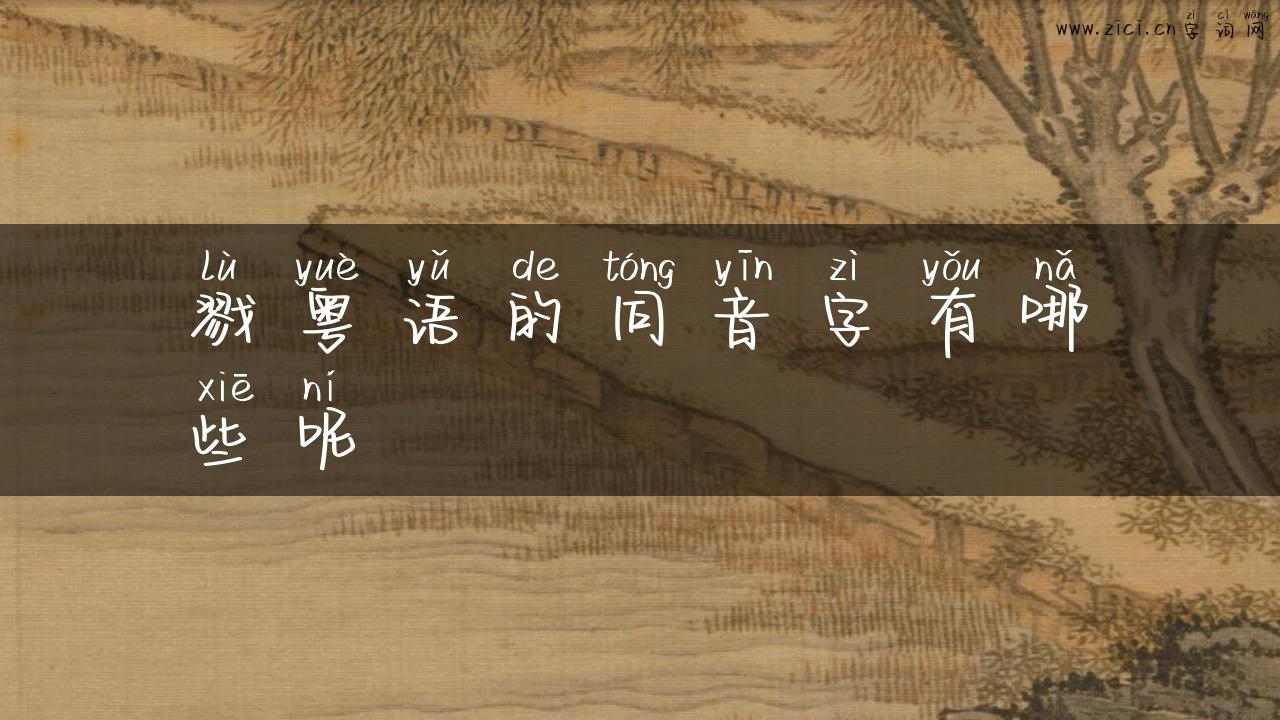 zì cí wǎng
www.zici.cn字词网
lù yuè yǔ de tóng yīn zì yǒu nǎ
戮粤语的同音字有哪
xiē ní
些呢